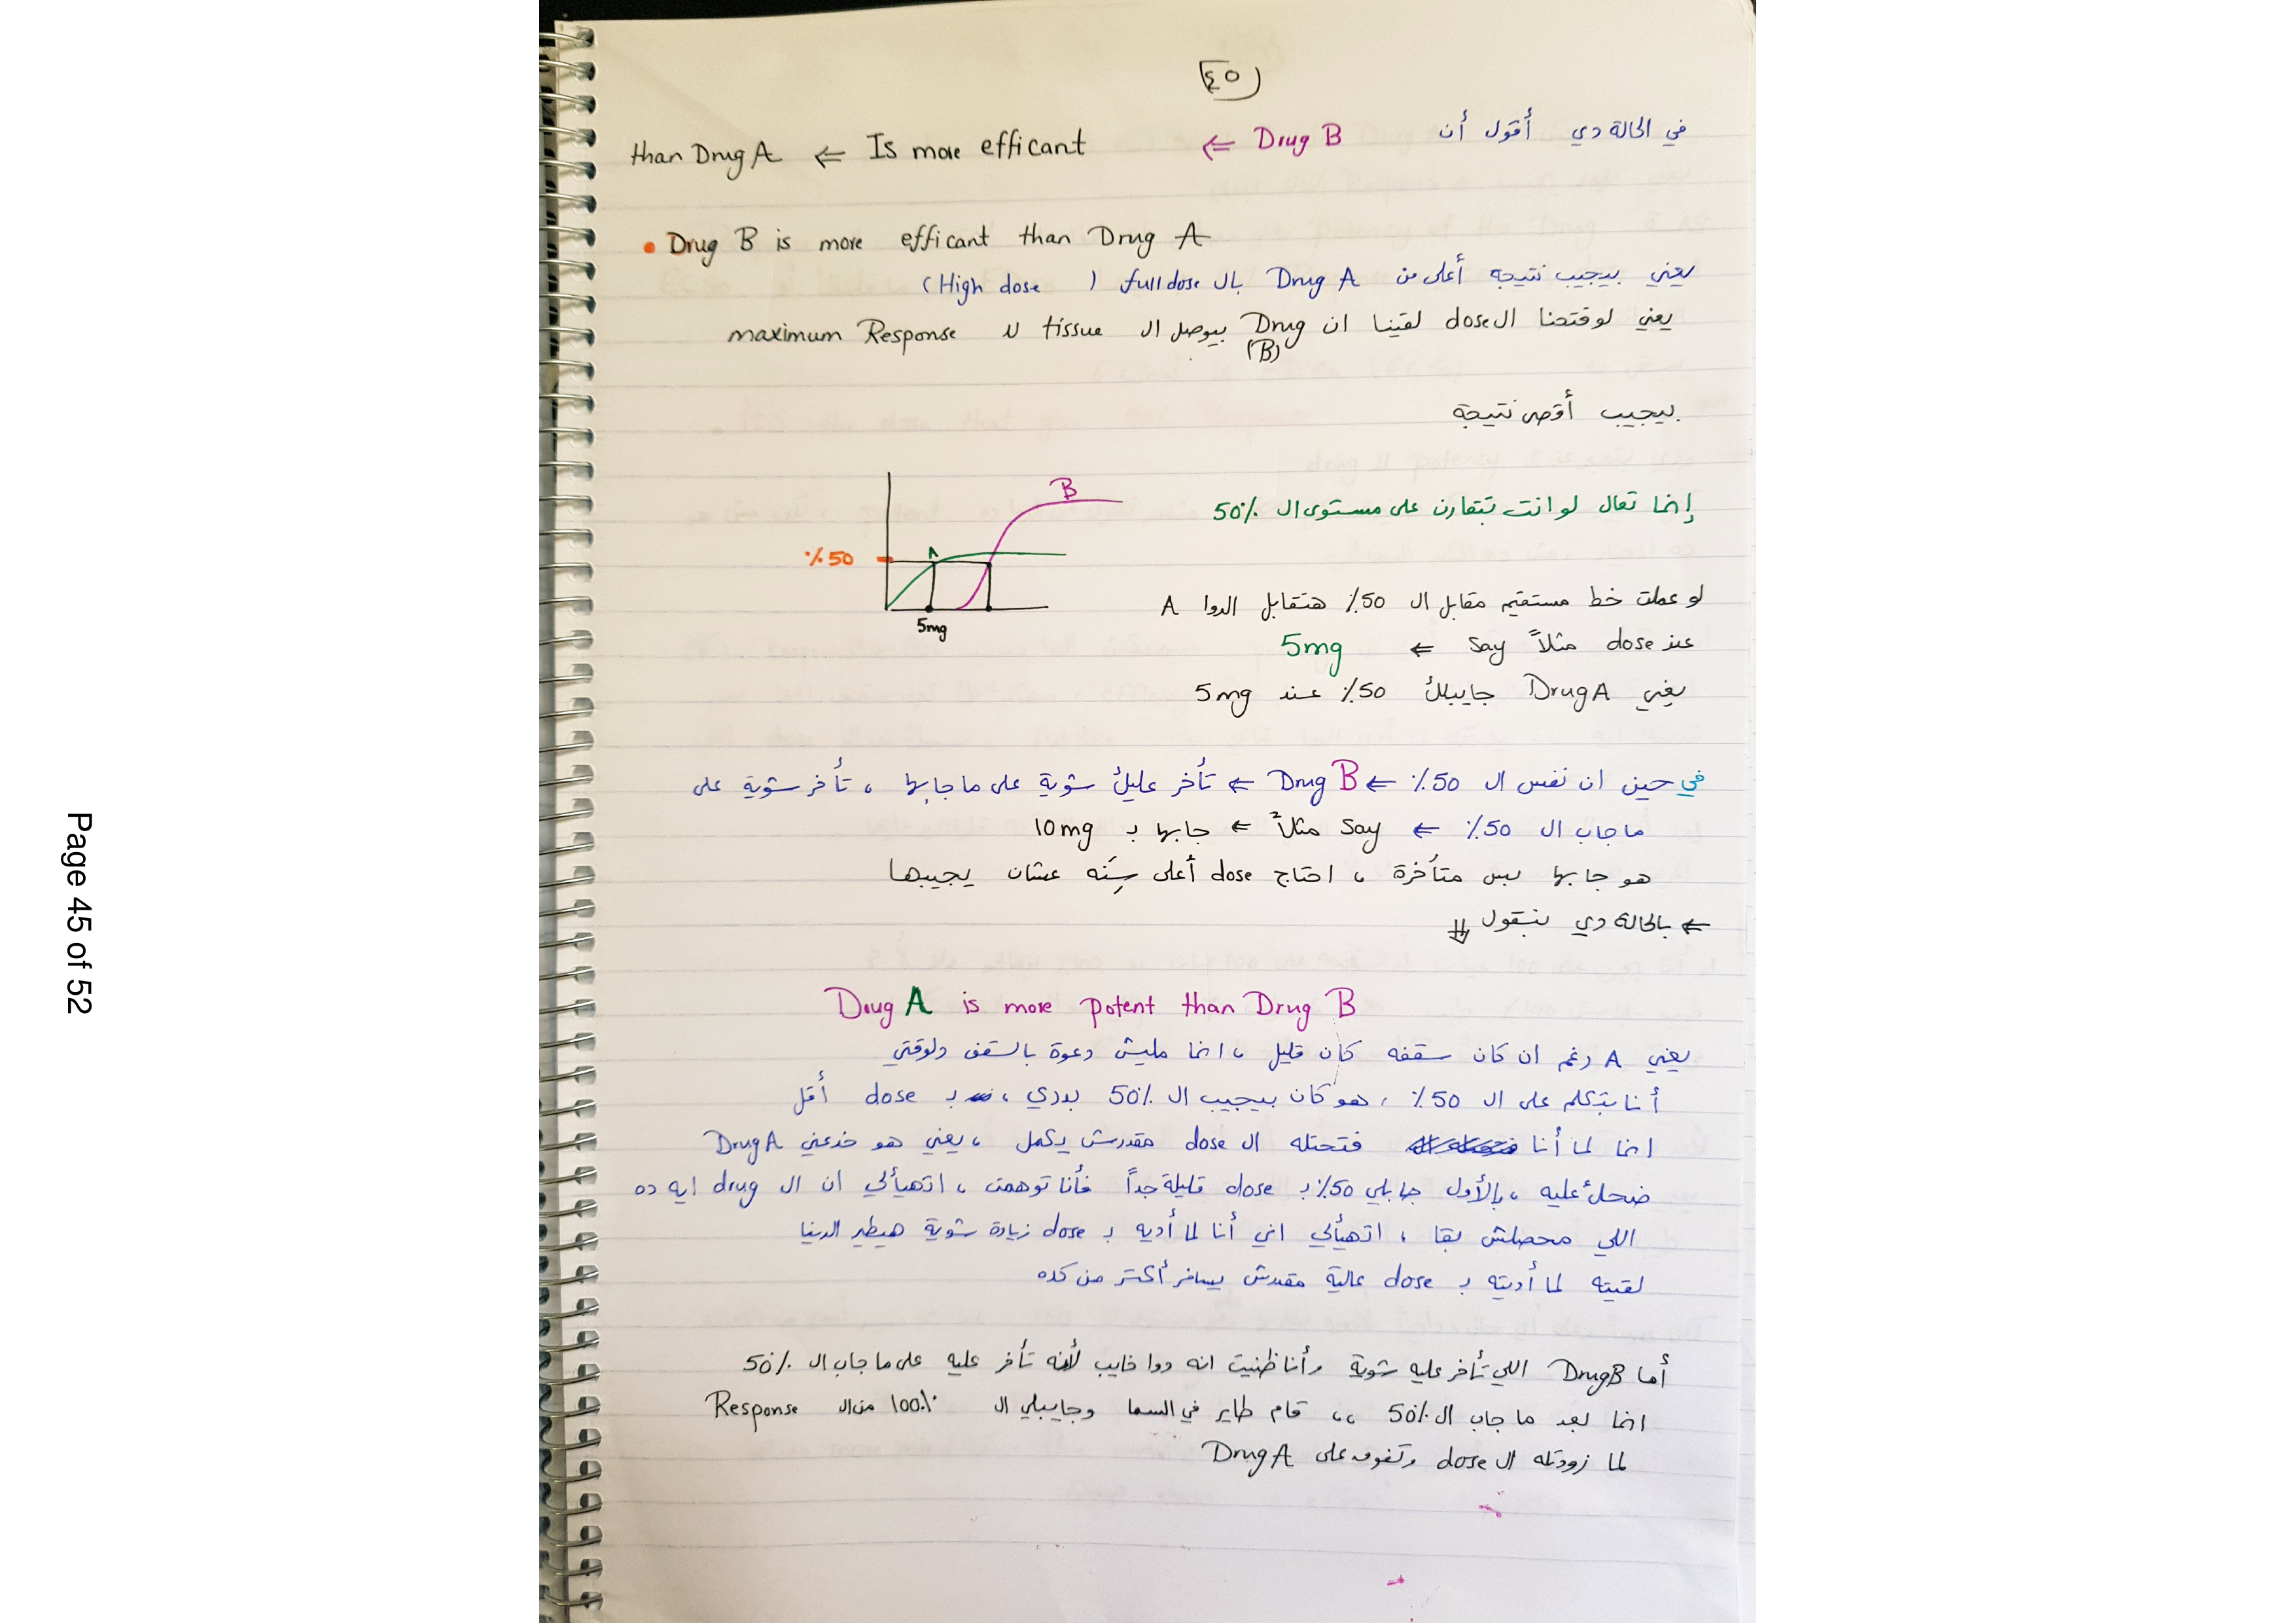 ٤٥
في الحالة دي أقول أن Drug B ⇐ Is more efficant ⇐ than Drug A
• Drug B is more efficant than Drug A
يعني بيجيب نتيجه أعلى من Drug A بال full dose ( High dose )
يعني لو فتحنا ال dose لقينا ان Drug (B) بيوصل ال tissue لل maximum Response
بيجيب أقصى نتيجة
B
إنما تعال لو انت بتقارن على مستوى ال 50%
A
٪ 50
لو عملت خط مستقيم مقابل ال 50٪ هتقابل الدوا A
5mg
عند dose مثلاً Say ⇐ 5mg
يعني Drug A جايبلك 50٪ عند 5mg
في حين ان نفس ال 50٪ ← Drug B ⇐ تأخر عليك شوية على ما جابها ، تأخر شوية على
ما جاب ال 50٪ ⇐ Say مثلاً ⇐ جابها بـ 10mg
هو جابها بس متأخرة ، احتاج dose أعلى سِنّه عشان يجيبها
⇐ بالحالة دي بنقول ⇓
Drug A is more potent than Drug B
يعني A رغم ان كان سقفه كان قليل ، انما مليش دعوة بالسقف دلوقتي
أنا بتكلم على ال 50٪ ، هو كان بيجيب ال 50% بدري ، بـ dose أقل
انما لما أنا فتحتله ال dose مقدرش يكمل ، يعني هو خدعني Drug A
ضحك عليه ، بالأول جابلي 50٪ بـ dose قليلة جداً فأنا توهمت ، اتهيألي ان ال drug ايه ده
اللي محصلش بقا ، اتهيألي اني أنا لما أديه بـ dose زيادة شوية هيطير الدنيا
لقيته لما أديته بـ dose عالية مقدرش يسافر أكتر من كده
أما Drug B اللي تأخر عليه شوية وأنا ظنيت انه دوا خايب لأنه تأخر عليه على ما جاب ال 50%
انما بعد ما جاب ال 50% ،، قام طاير في السما وجايبلي ال 100٪ من ال Response
لما زودتله ال dose وتفوق على Drug A
Page 45 of 52